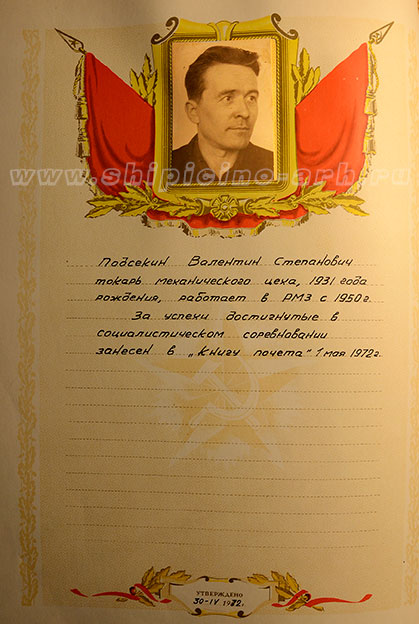 www.shipicino-arh.ru
Подсекин Валентин Степанович
токарь механического цеха, 1931 года
рождения, работает в РМЗ с 1950г.
За успехи достигнутые в
социалистическом соревновании
занесен в „Книгу почета" 1 мая 1972г.
УТВЕРЖДЕНО
30-IV 1972г.